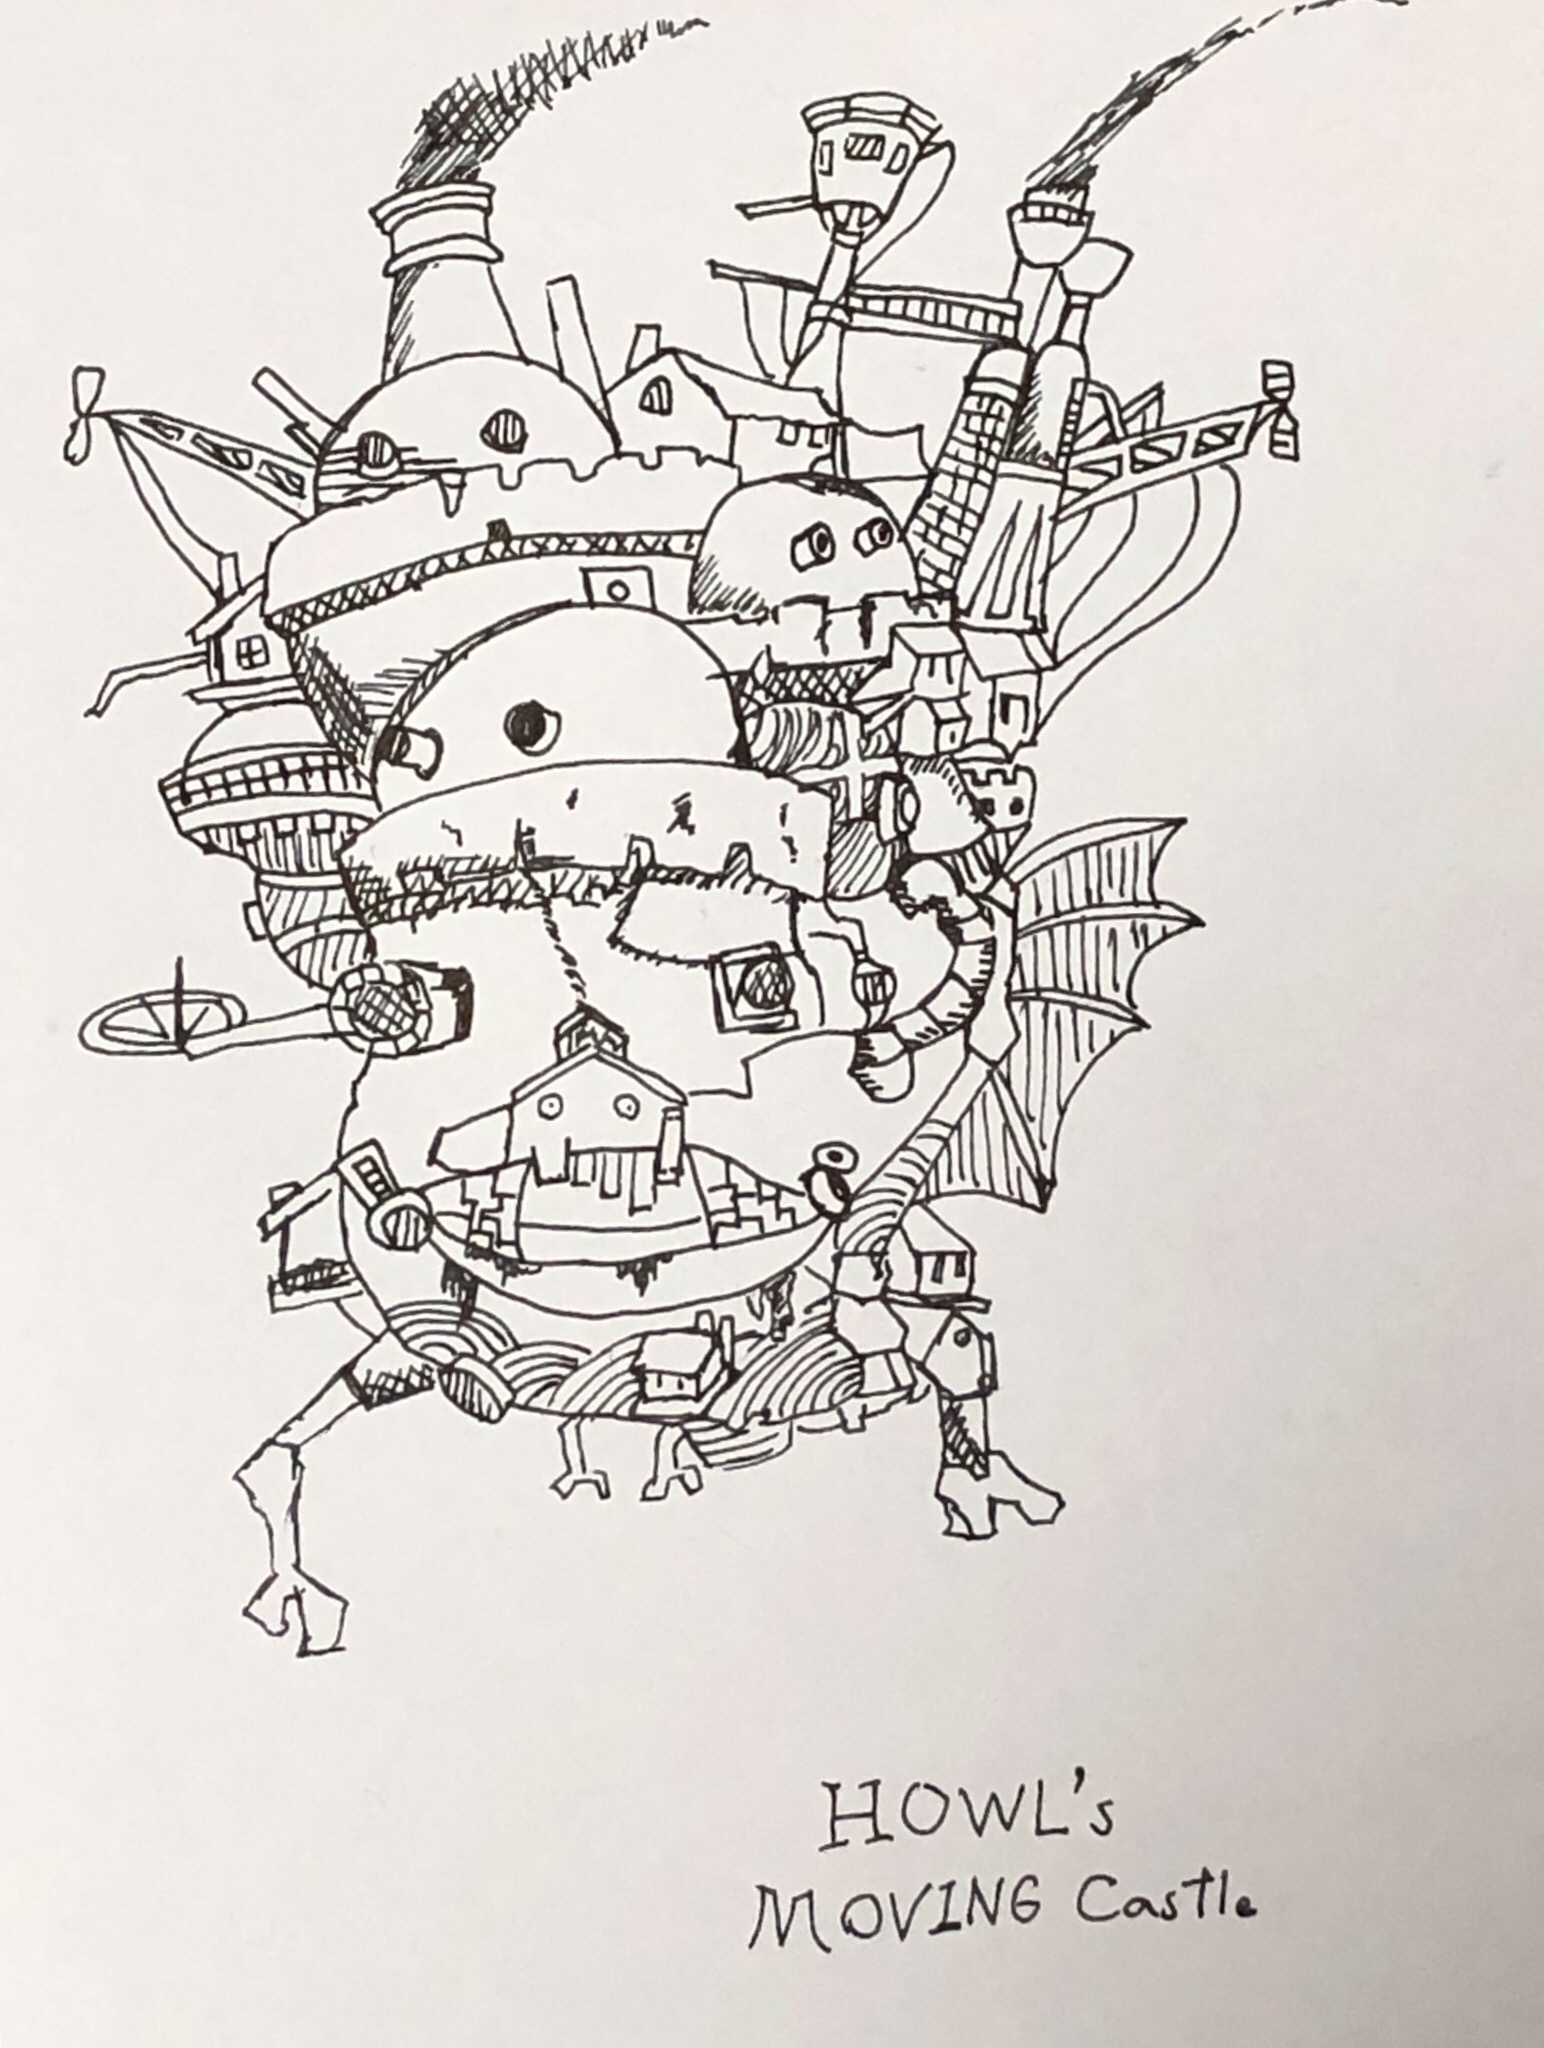 HOWL's
MOVING Castle